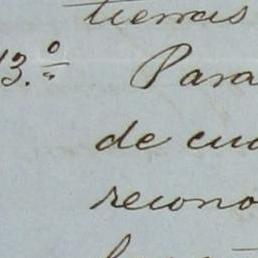 tierras
13.º Para
de cua
recono